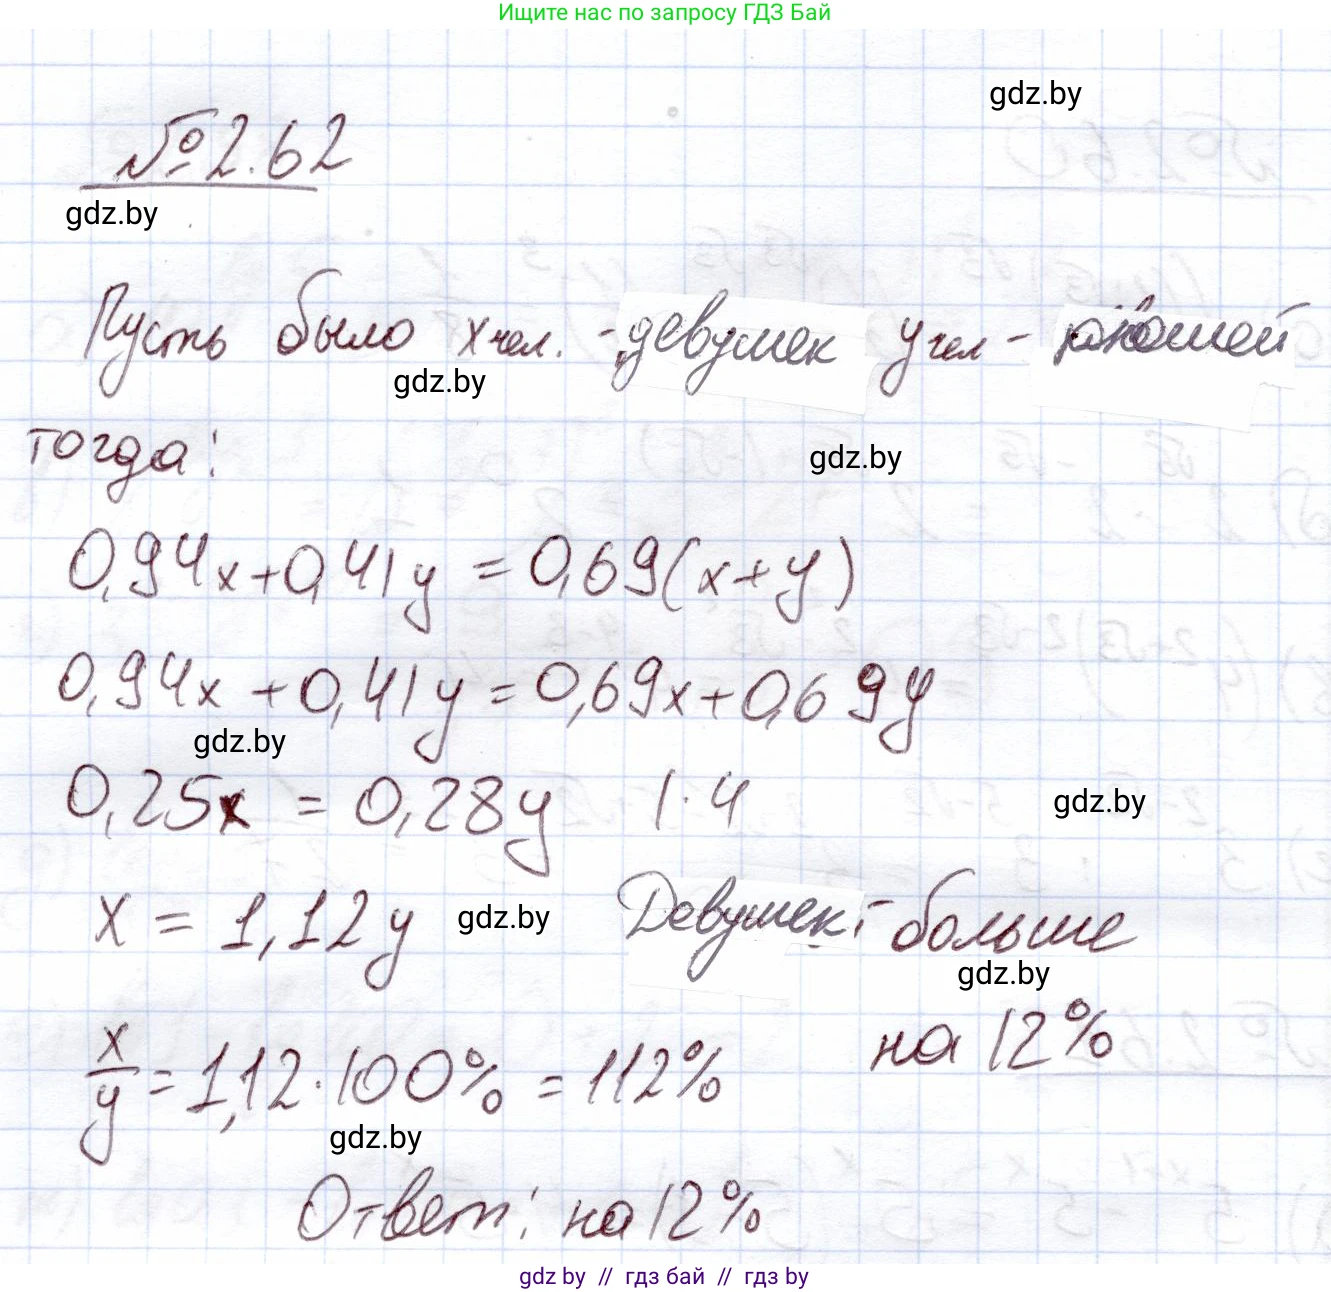 Ищите нас по запросу ГДЗ Бай
gdz.by
№ 2.62
gdz.by
Пусть было x чел. - девушек y чел - юношей
gdz.by
тогда:
gdz.by
0,94x+0,41y = 0,69(x+y)
0,94x + 0,41y = 0,69x+0,69y
gdz.by
0,25x = 0,28y |·4
gdz.by
x = 1,12y gdz.by Девушек - больше
gdz.by
на 12%
x/y = 1,12·100% = 112%
gdz.by
Ответ: на 12%
gdz by // гдз бай // gdz by